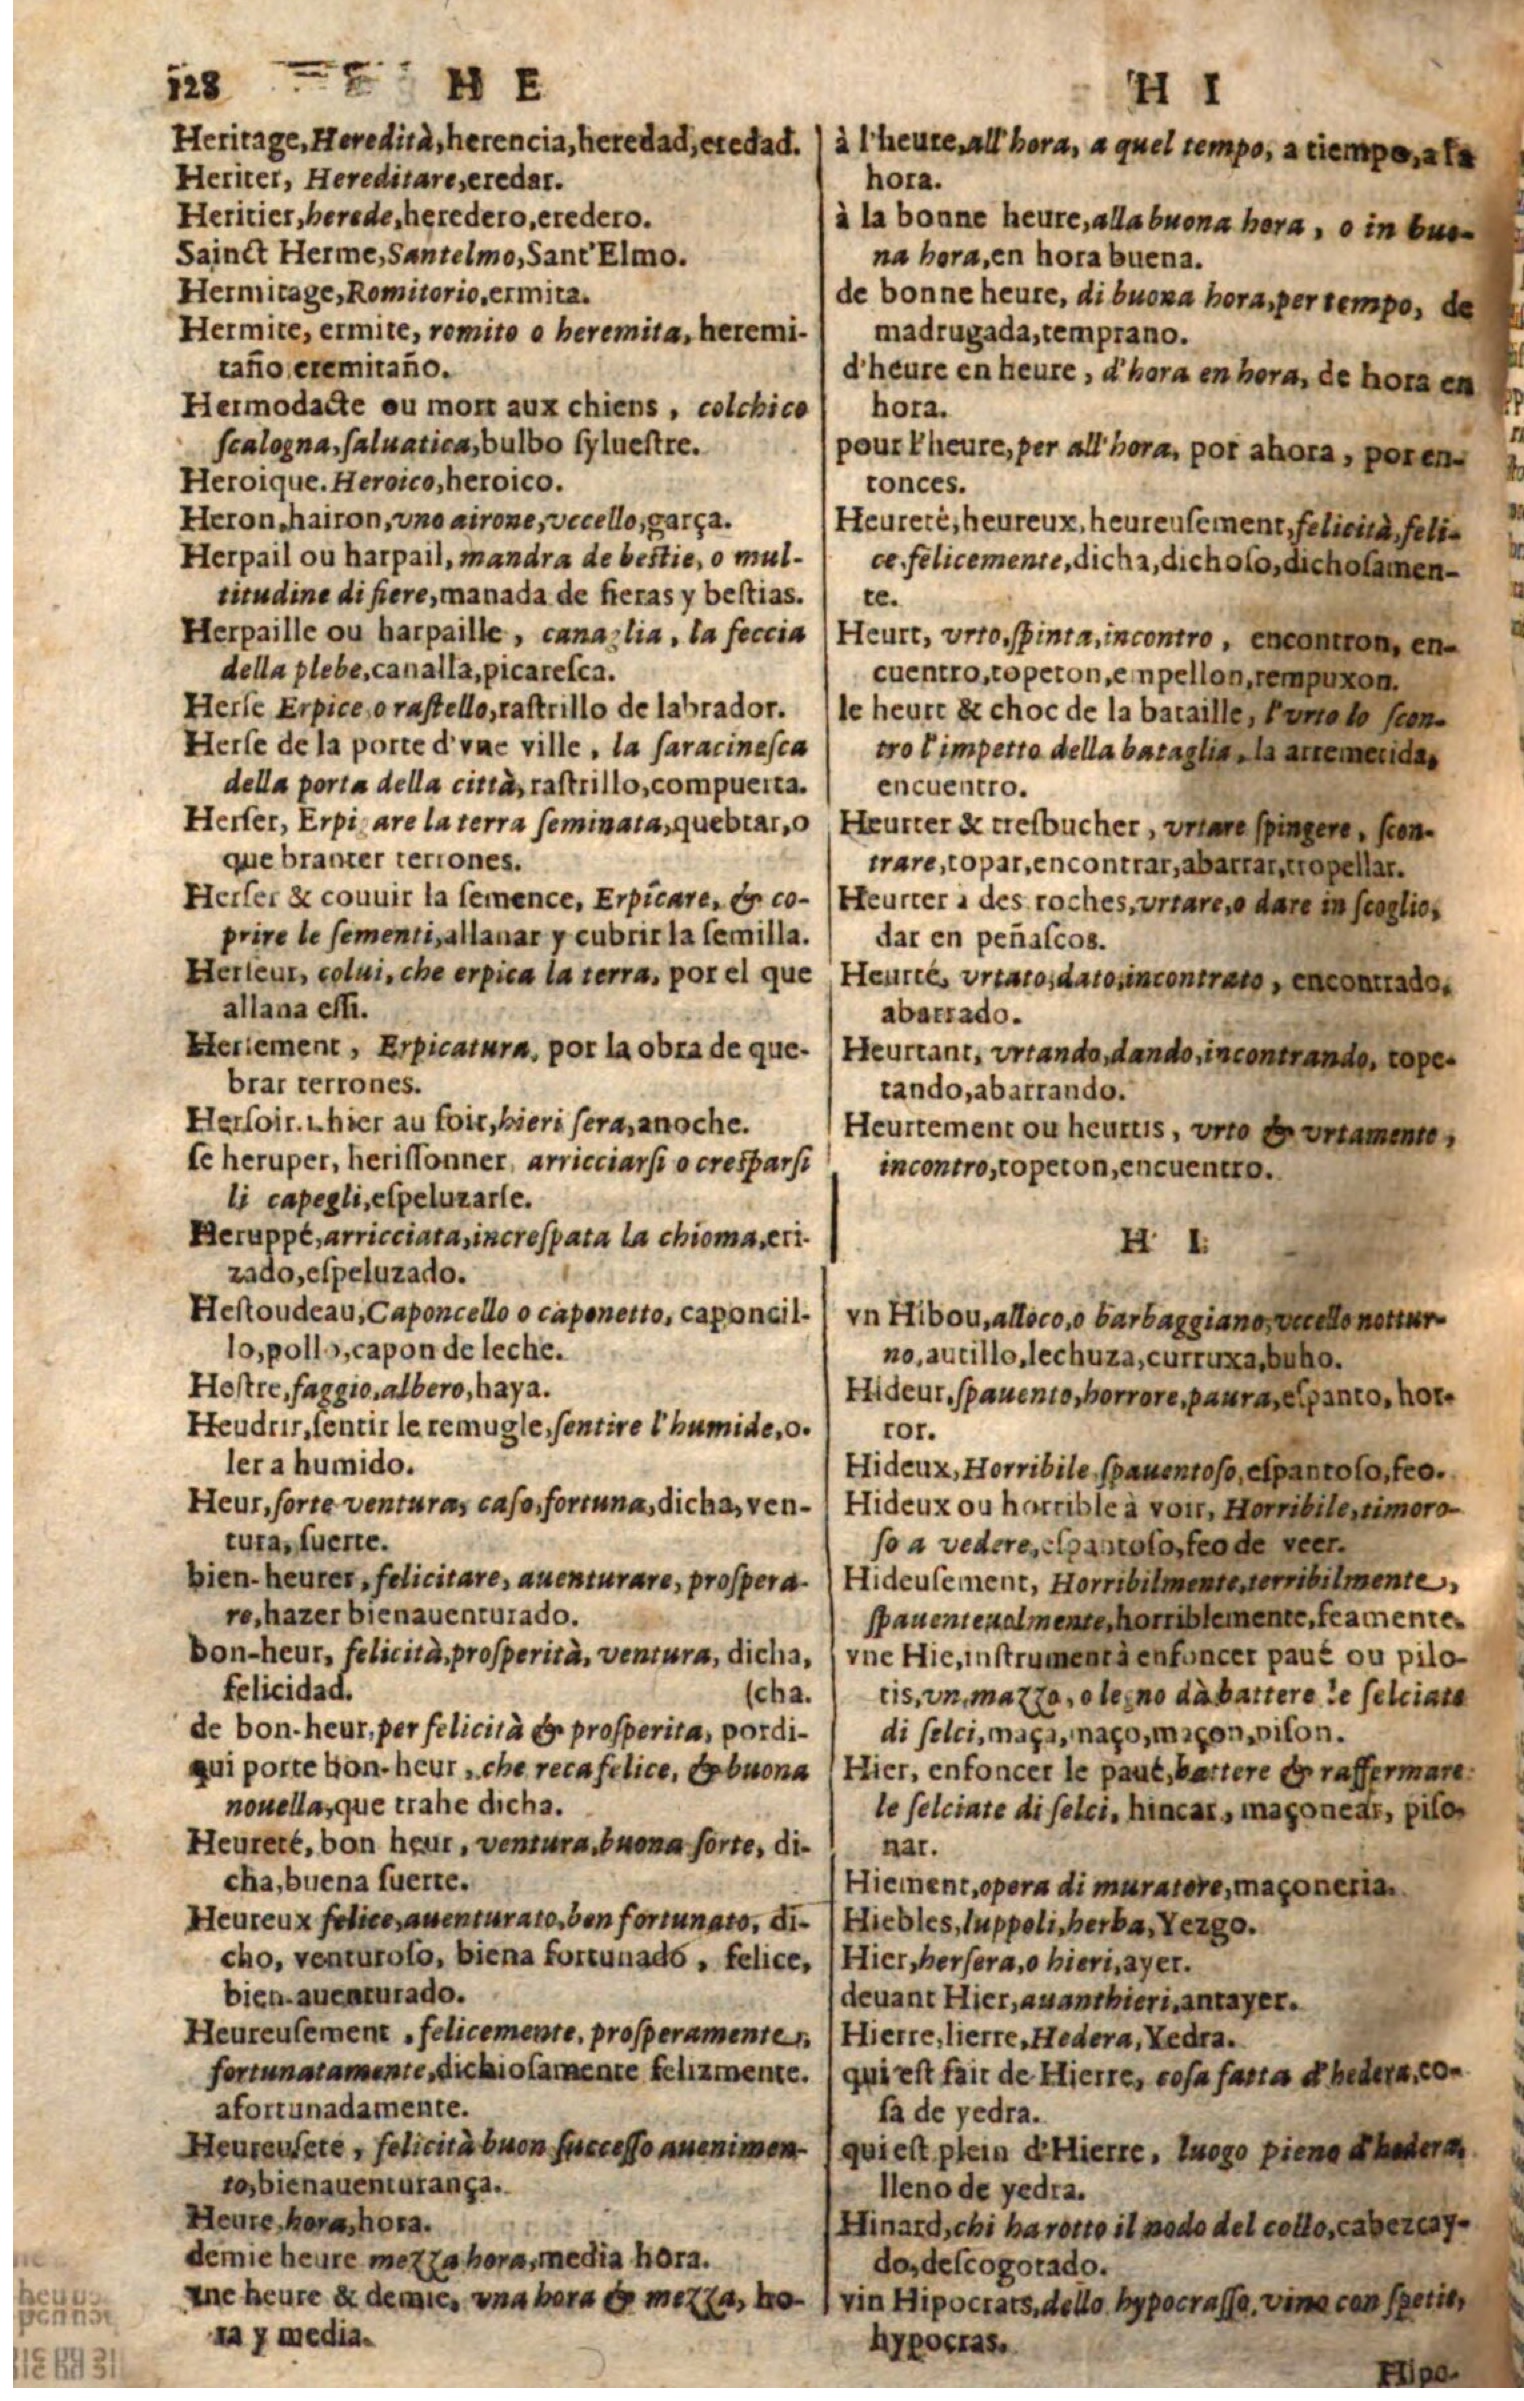 128 H E
Heritage, Heredità, herencia, heredad, eredad.
Heriter, Hereditare, eredar.
Heritier, herede, heredero, eredero.
Sainct Herme, Santelmo, Sant'Elmo.
Hermitage, Romitorio, ermita.
Hermite, ermite, romito o heremita, heremi-
taño eremitaño.
Hermodacte ou mort aux chiens, colchico
scalogna, saluatica, bulbo syluestre.
Heroique. Heroico, heroico.
Heron, hairon, vno airone, vccello, garça.
Herpail ou harpail, mandra de bestie, o mul-
titudine di fiere, manada de fieras y bestias.
Herpaille ou harpaille, canaglia, la feccia
della plebe, canalla, picaresca.
Herse Erpice o rastello, rastrillo de labrador.
Herse de la porte d'vne ville, la saracinesca
della porta della città, rastrillo, compuerta.
Herser, Erpicare la terra seminata, quebrar, o
que branter terrones.
Herser & couuir la semence, Erpicare, & co-
prire le sementi, allanar y cubrir la semilla.
Herseur, colui, che erpica la terra, por el que
allana essi.
Hersement, Erpicatura, por la obra de que-
brar terrones.
Hersoir. hier au soir, hieri sera, anoche.
se heruper, herissonner, arricciarsi o cresparsi
li capegli, espeluzarse.
Heruppé, arricciata, increspata la chioma, eri-
zado, espeluzado.
Hestoudeau, Caponcello o caponetto, caponcil-
lo, pollo, capon de leche.
Hestre, faggio, albero, haya.
Heudrir, sentir le remugle, sentire l'humide, o-
ler a humido.
Heur, sorte ventura, caso, fortuna, dicha, ven-
tura, suerte.
bien-heurer, felicitare, auenturare, prospera-
re, hazer bienauenturado.
bon-heur, felicità, prosperità, ventura, dicha,
felicidad. (cha.
de bon-heur, per felicità & prosperita, por di-
qui porte bon-heur, che reca felice, & buona
nouella, que trahe dicha.
Heureté, bon heur, ventura, buona sorte, di-
cha, buena suerte.
Heureux felice, auenturato, ben fortunato, di-
cho, venturoso, biena fortunado, felice,
bien-auenturado.
Heureusement, felicemente, prosperamente,
fortunatamente, dichiosamente felizmente.
afortunadamente.
Heureusete, felicità buon successo auenimen-
to, bienauenturança.
Heure, hora, hora.
demie heure mezza hora, media hora.
vne heure & demie, vna hora & mezza, ho-
ra y media.
H I
à l'heure, all'hora, a quel tempo, a tiempo, a la
hora.
à la bonne heure, alla buona hora, o in buo-
na hora, en hora buena.
de bonne heure, di buona hora, per tempo, de
madrugada, temprano.
d'heure en heure, d'hora en hora, de hora en
hora.
pour l'heure, per all'hora, por ahora, por en-
tonces.
Heureté, heureux, heureusement, felicità, feli-
ce, felicemente, dicha, dichoso, dichosamen-
te.
Heurt, vrto, spinta, incontro, encontron, en-
cuentro, topeton, empellon, rempuxon.
le heurt & choc de la bataille, l'vrto lo scon-
tro l'impetto della bataglia, la arremetida,
encuentro.
Heurter & tresbucher, vrtare spingere, scon-
trare, topar, encontrar, abarrar, tropellar.
Heurter a des roches, vrtare, o dare in scoglio,
dar en peñascos.
Heurté, vrtato, dato, incontrato, encontrado,
abarrado.
Heurtant, vrtando, dando, incontrando, tope-
tando, abarrando.
Heurtement ou heurtis, vrto & vrtamente,
incontro, topeton, encuentro.
H I.
vn Hibou, alloco, o barbaggiano, vccello nottur-
no, autillo, lechuza, curruxa, buho.
Hideur, spauento, horrore, paura, espanto, hor-
ror.
Hideux, Horribile, spauentoso, espantoso, feo.
Hideux ou horrible à voir, Horribile, timoro-
so a vedere, espantoso, feo de veer.
Hideusement, Horribilmente, terribilmente,
spauenteuolmente, horriblemente, feamente.
vne Hie, instrument à enfoncer paué ou pilo-
tis, vn, mazzo, o legno dà battere le selciate
di selci, maça, maço, maçon, pison.
Hier, enfoncer le paué, battere & raffermare
le selciate di selci, hincar, maçonear, piso-
nar.
Hiement, opera di muratore, maçoneria.
Hiebles, luppoli, herba, Yezgo.
Hier, hersera, o hieri, ayer.
deuant Hier, auanthieri, antayer.
Hierre, lierre, Hedera, Yedra.
qui est fait de Hierre, cosa fatta d'hedera, co-
sa de yedra.
qui est plein d'Hierre, luogo pieno d'hedera,
lleno de yedra.
Hinard, chi ha rotto il nodo del collo, cabezcay-
do, descogotado.
vin Hipocrats, dello hypocrasso, vino con spetie,
hypocras.
Hipo-